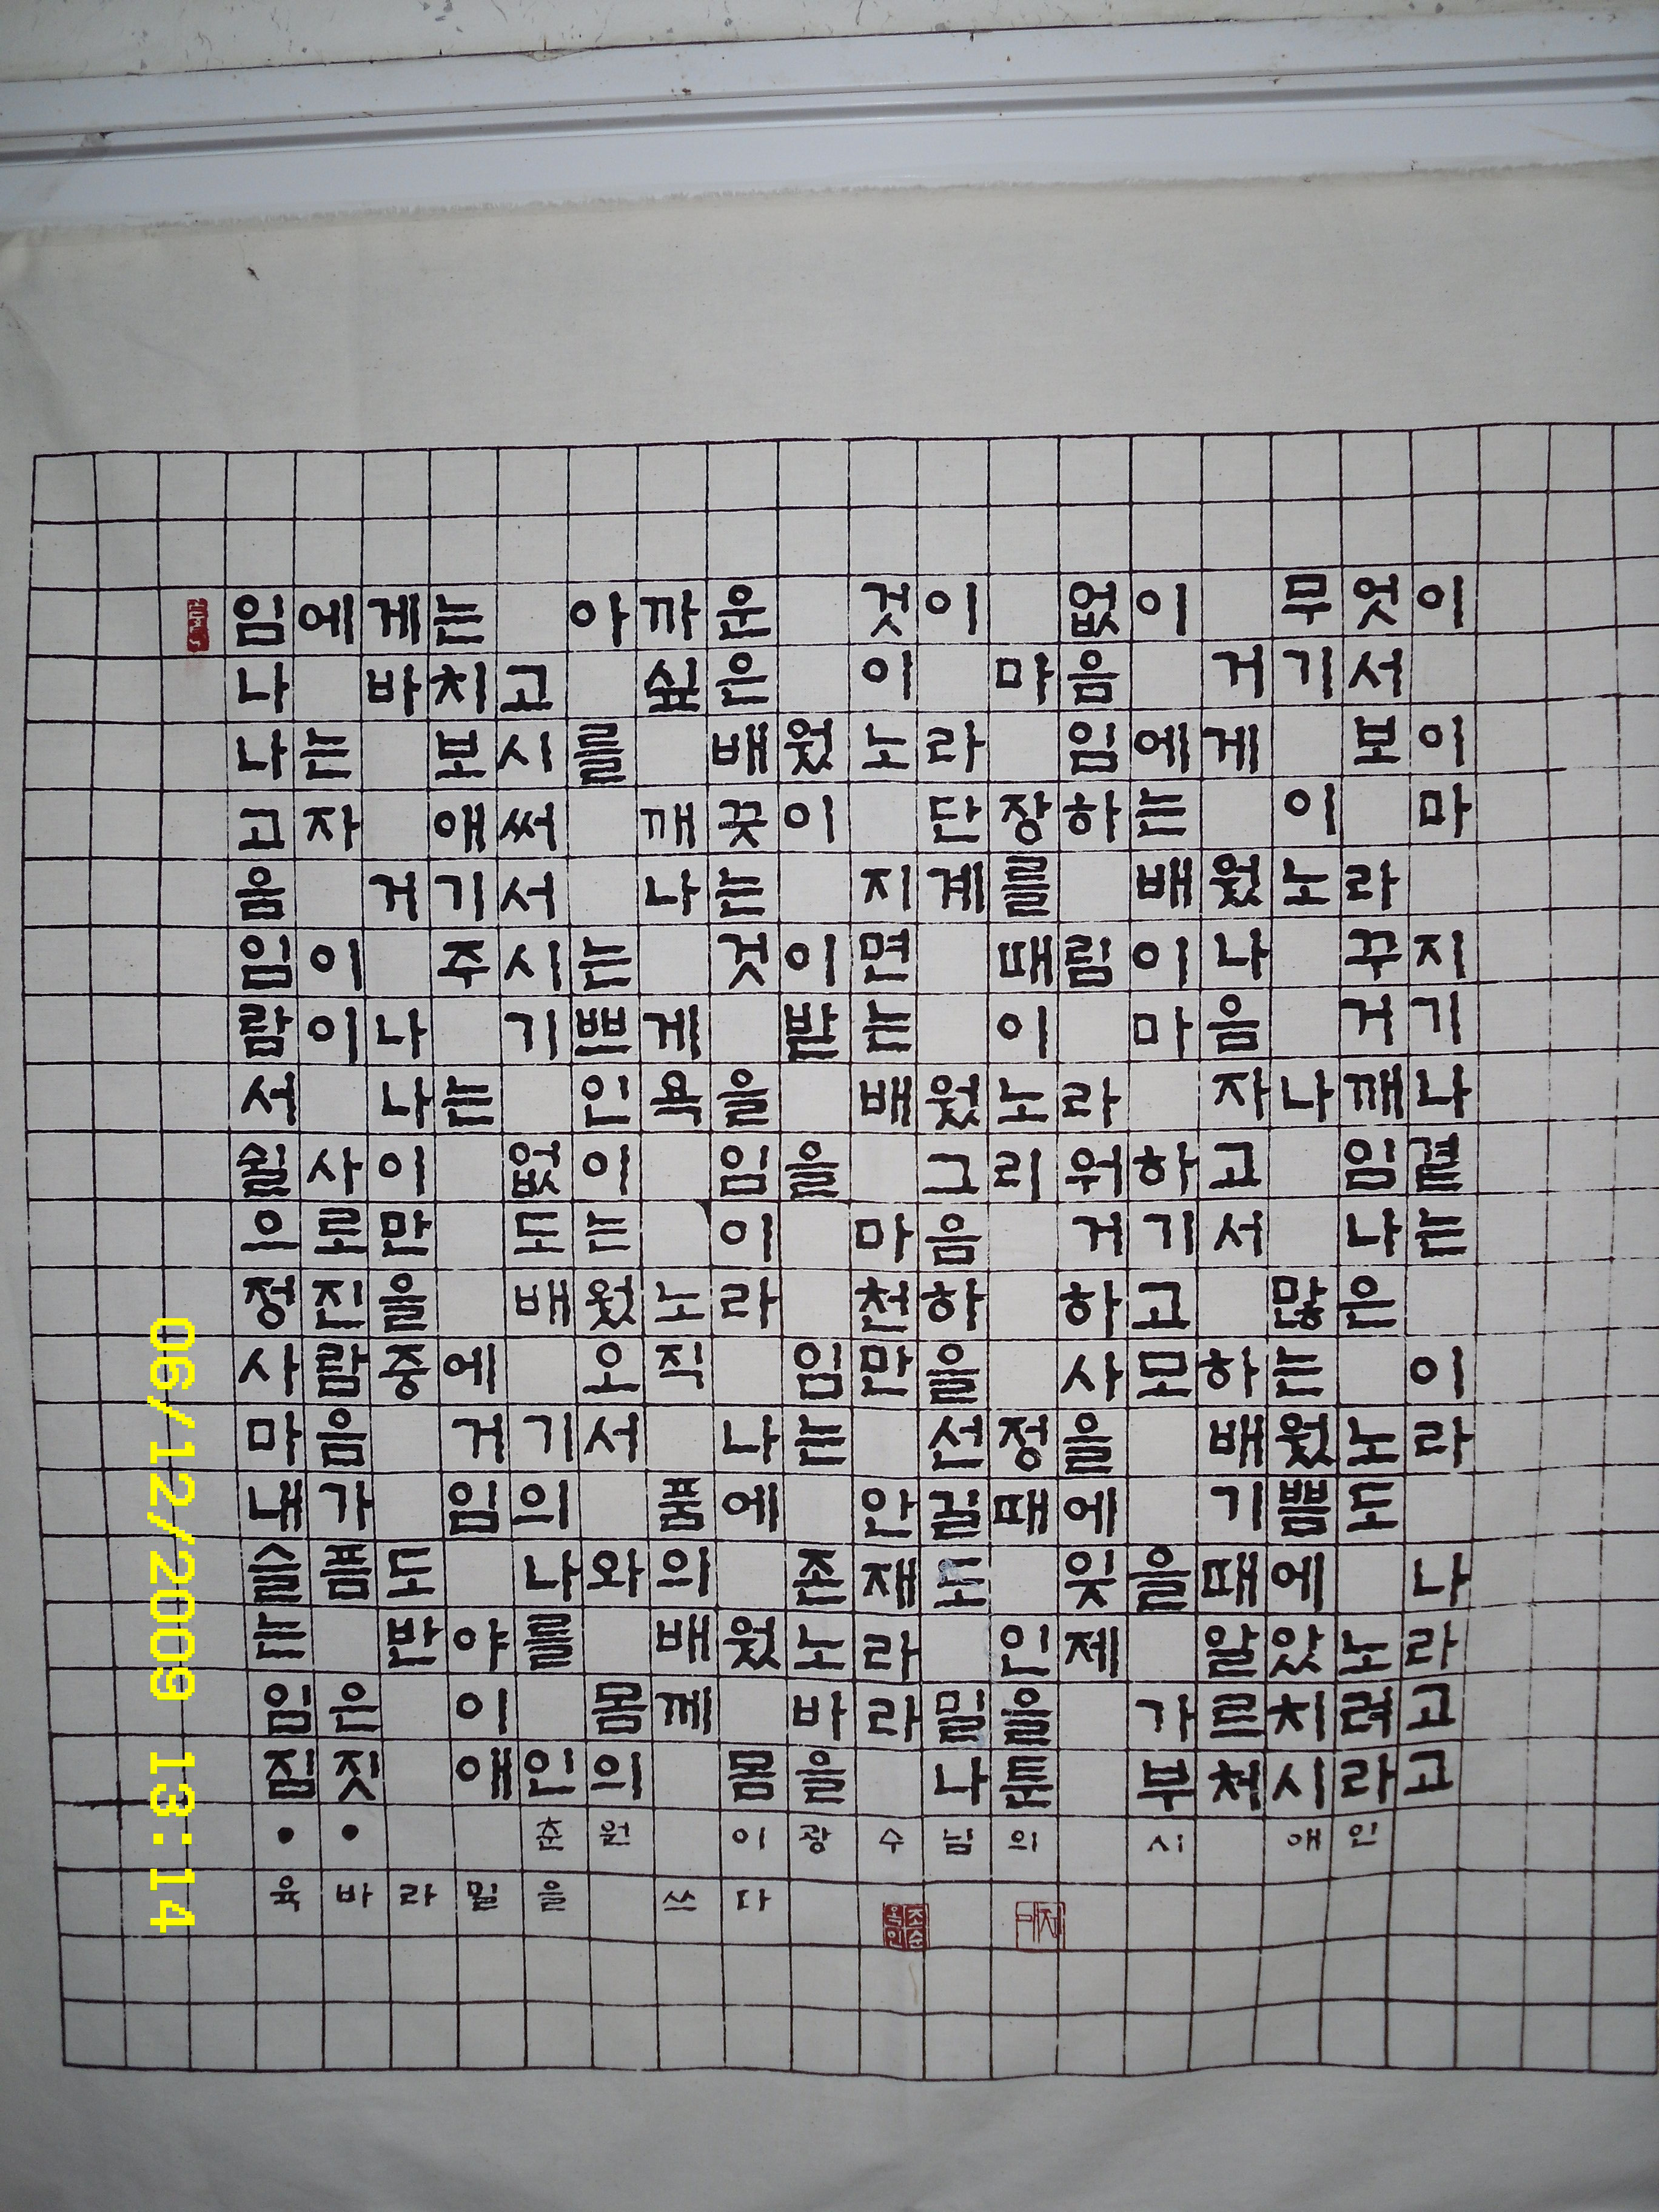 임에게는 아까운 것이 없이 무엇이
나 바치고 싶은 이 마음 거기서
나는 보시를 배웠노라 임에게 보이
고자 애써 깨끗이 단장하는 이 마
음 거기서 나는 지계를 배웠노라
임이 주시는 것이면 때림이나 꾸지
람이나 기쁘게 받는 이 마음 거기
서 나는 인욕을 배웠노라 자나깨나
쉴사이 없이 임을 그리워하고 임곁
으로만 도는 이 마음 거기서 나는
정진을 배웠노라 천하 하고 많은
사람중에 오직 임만을 사모하는 이
마음 거기서 나는 선정을 배웠노라
내가 임의 품에 안길때에 기쁨도
슬픔도 나와의 존재도 잊을때에 나
는 반야를 배웠노라 인제 알았노라
임은 이 몸께 바라밀을 가르치려고
짐짓 애인의 몸을 나툰 부처시라고
•• 춘원 이광수님의 시 애인
육바라밀을 쓰다
06/12/2009 13:14